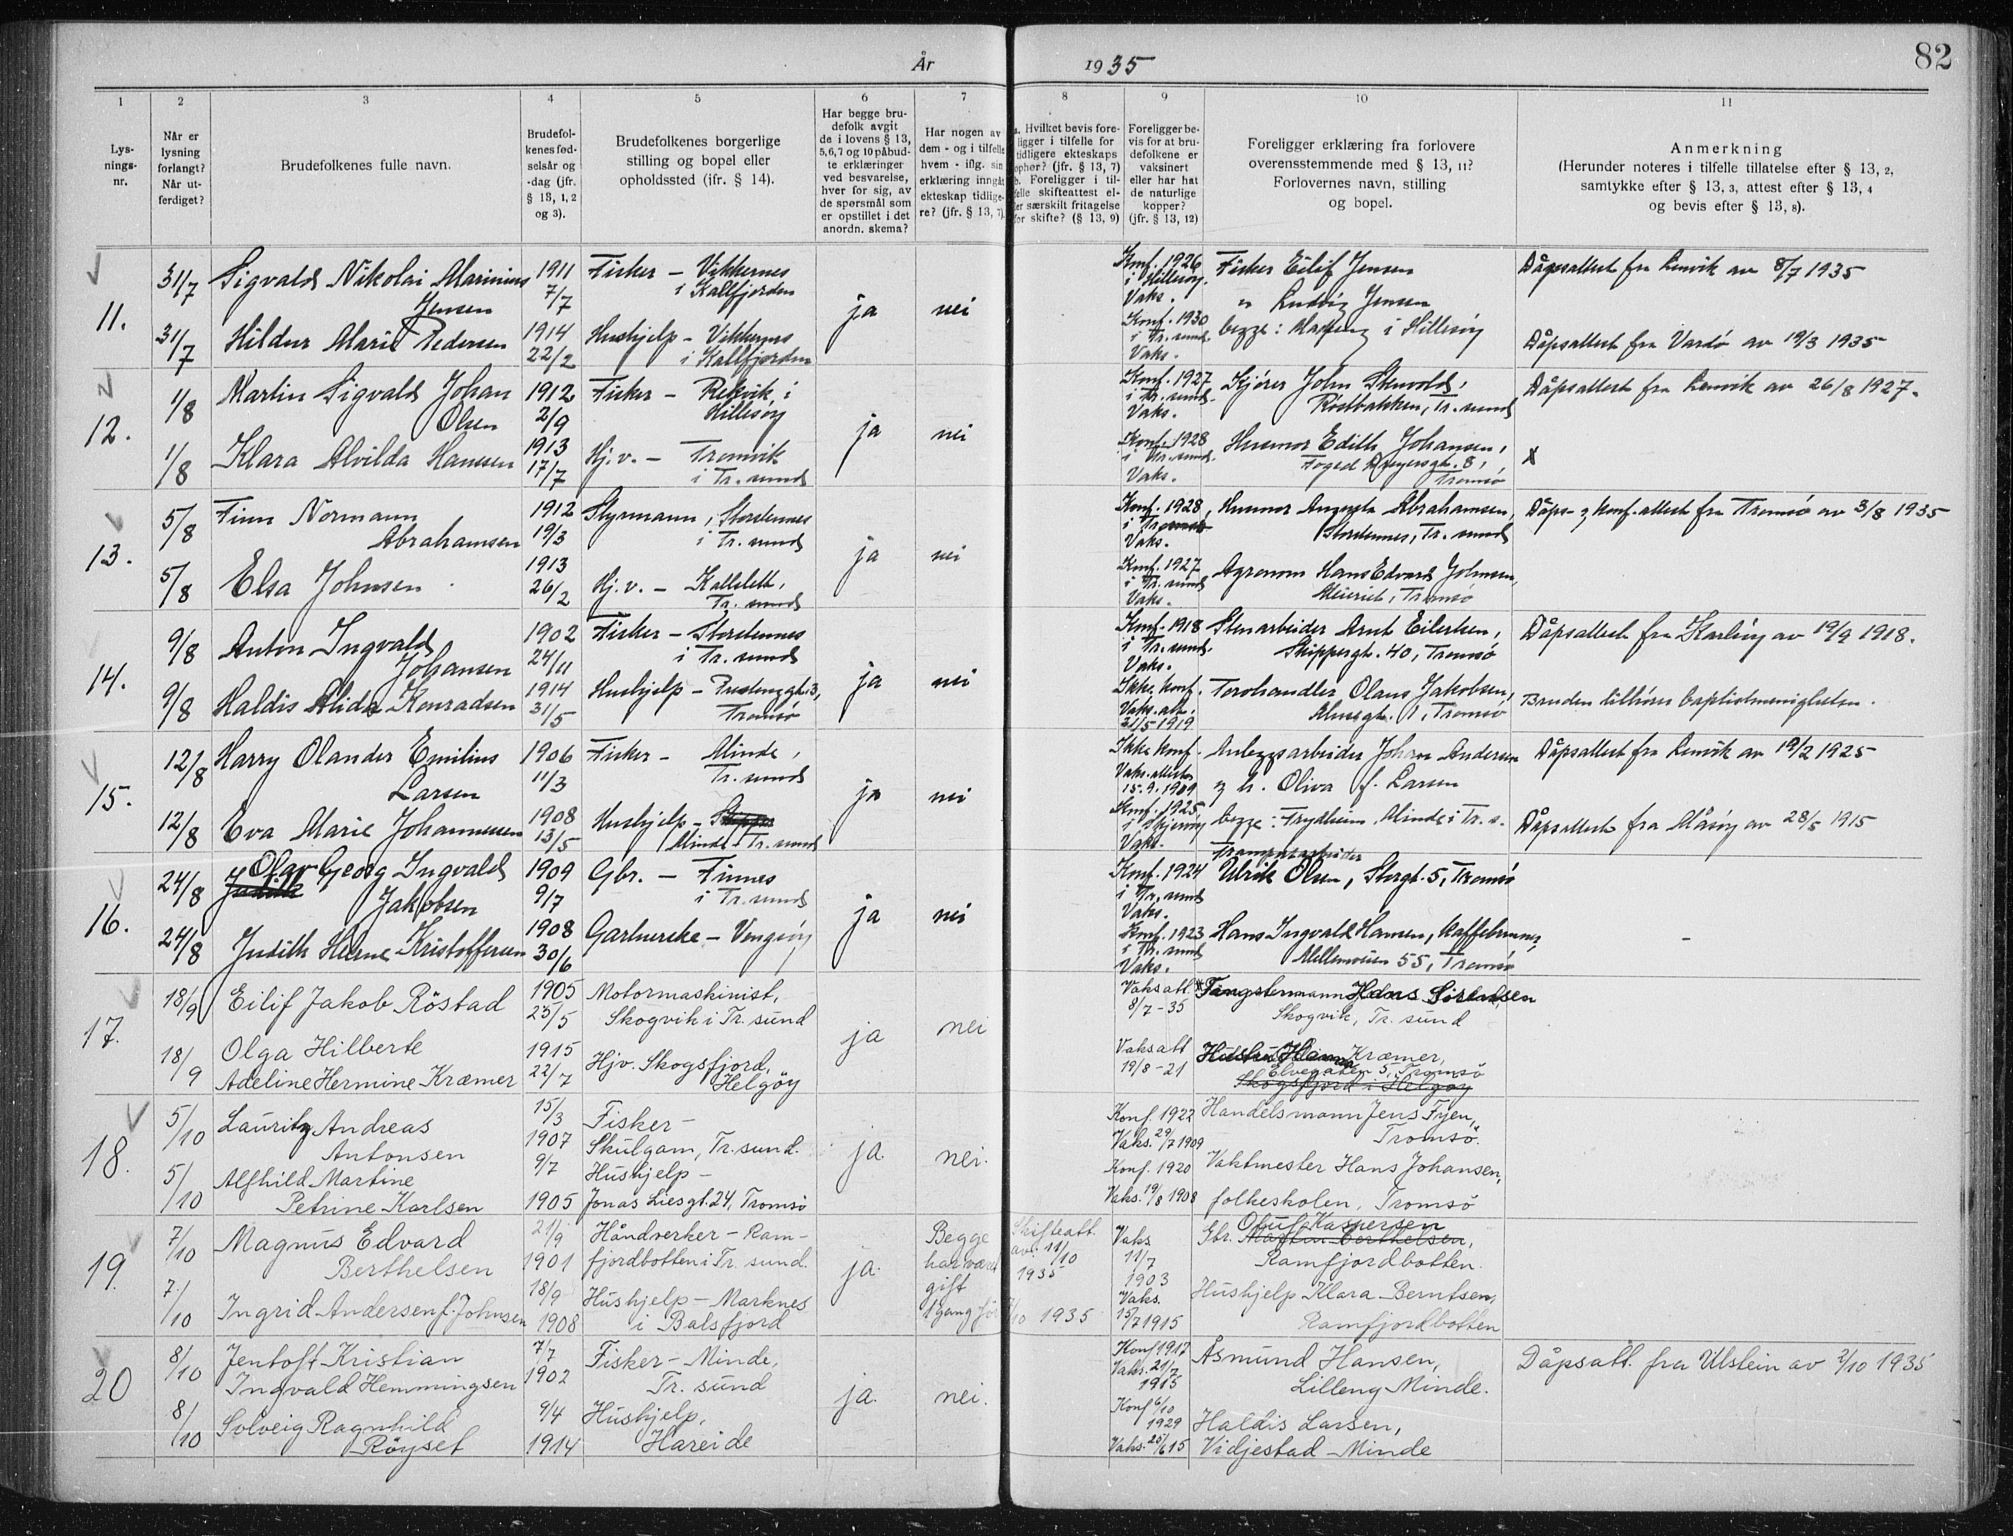 År 1935
82
1 2 3 4 5 6 7 8 9 10 11
Lys-
nings-
nr.
Når er
lysning
forlangt?
Når ut-
ferdiget?
Brudefolkenes fulle navn.
Brudefol-
kenes fød-
selsår og
-dag (jfr.
§ 13, 1, 2
og 3).
Brudefolkenes borgerlige
stilling og bopel eller
opholdssted (jfr. § 14).
Har begge bru-
defolk avgit
de i lovens § 13,
5, 6, 7 og 10 påbud-
te erklæringer
ved besvarelse,
hver for sig, av
de spørsmål som
er opstillet i det
anordn. skema?
Har nogen av
dem - og i tilfelle
hvem - iflg. sin
erklæring inngåt
ekteskap tidlige-
re? (jfr. § 13, 7).
a. Hvilket bevis fore-
ligger i tilfelle for
tidligere ekteskaps
ophør? (jfr. § 13, 7)
b. Foreligger i til-
felle skifteattest el-
ler særskilt fritagelse
for skifte? (§ 13, 9)
Foreligger be-
vis for at bru-
defolkene er
vaksinert
eller har hat
de naturlige
kopper?
(jfr. § 13, 12)
Foreligger erklæring fra forlovere
overensstemmende med § 13, 11?
Forlovernes navn, stilling
og bopel.
Anmerkning
(Herunder noteres i tilfelle tillatelse efter § 13, 2,
samtykke efter § 13, 3, attest efter § 13, 4
og bevis efter § 13, 8).
11.
31/7 Sigvald Nikolai Marinius
Jensen
1911
7/7
Fisker - Vikkernes
i Kallfjorden
ja nei
Konf. 1926
i Hillesøy.
Vaks.
Fisker Eilif Jensen
" Ludvig Jensen
Dåpsattest fra Lenvik av 8/7 1935
31/7 Hildur Marie Pedersen
1914
22/2
Hushjelp - Vikkernes
i Kallfjorden
Konf. 1930
i Tr. sund.
Vaks.
begge: i Hillesøy
Dåpsattest fra Vardø av 19/3 1935
12.
1/8 Martin Sigvald Johan
Olsen
1912
2/9
Fisker - Rekvik i
Hillesøy
ja nei
Konf. 1927
i Tr. sund.
Vaks.
Kjører John Stenvold,
Rødbakken, Tr. sund
Dåpsattest fra Lenvik av 26/8 1927.
1/8 Klara Alvilda Hansen
1913
17/7
Hj.v. - Tromvik
i Tr. sund
Konf. 1928
i Tr. sund.
Vaks.
Husmor Edith Johansen,
Foged Dreyersgt. 8,
Tromsø
x
13.
5/8 Finn Normann
Abrahamsen
1912
19/3
Styrmann, Storstennes
i Tr. sund
ja nei
Konf. 1928
i Tromsø
Vaks.
Husmor Augusta Abrahamsen,
Storstennes, Tr. sund
Dåps- og konf.attest fra Tromsø av 3/8 1935
5/8 Elsa Johnsen
1913
26/2
Hj.v. - Kallelett,
Tr. sund
Konf. 1927
i Tr. sund
Vaks.
Agronom Hans Edvard Johnsen,
Meieriet, Tromsø
14.
9/8 Anton Ingvald
Johansen
1902
24/11
Fisker - Storstennes
i Tr. sund
ja nei
Konf. 1918
i Tr. sund.
Vaks.
Stenarbeider Arnt Eilertsen,
Skippergt. 40, Tromsø
Dåpsattest fra Karlsøy av 19/9 1918.
9/8 Haldis Alida Konradsen
1914
31/5
Hushjelp - 3,
Tromsø
Ikke konf.
Vaks.att.
31/5 1919
Torvhandler Olaus Jakobsen,
1, Tromsø
Bruden tilhører baptistmenigheten.
15.
12/8 Harry Olander Emilius
Larsen
1906
11/3
Fisker - Minde,
Tr. sund
ja nei
Ikke konf.
Vaks.attest
15.9.1909
Anleggsarbeider Johan Andersen
og h. Oliva f. Larsen
Dåpsattest fra Lenvik av 19/2 1925
12/8 Eva Marie Johannessen
1908
13/5
Hushjelp -
Minde i Tr. sund
Konf. 1925
Vaks.
begge: Frydheim, Minde i Tr. s.
Dåpsattest fra Måsøy av 28/5 1915
16.
24/8 Olav Georg Ingvald
Judith Jakobsen
1909
9/7
Gbr. - Finnes
i Tr. sund
ja nei
Konf. 1924
i Tr. sund
Vaks.
Ulrik Olsen, Storgt. 5, Tromsø
24/8 Judith Helene Kristoffersen
1908
30/6
Gartnerske - Vengsøy
Konf. 1923
i Tr. sund
Vaks.
Hans Ingvald Hansen, kaffebrenner,
Mellemveien 55, Tromsø
-
17.
18/9 Eilif Jakob Röstad
1905
25/5
Motormaskinist,
Skogvik i Tr. sund
ja nei
Vaksatt.
8/7-35
Fangstermann Hans Sörensen
Skogvik, Tr. sund
18/9 Olga Hilberte
Adeline Hermine Kræmer
1915
22/7
Hjv. Skogsfjord,
Helgöy
Vaksatt
19/8-21
Hustru Hanna Kræmer,
Elvegaten 5, Tromsø
Skogsfjord i Helgöy
18.
5/10 Lauritz Andreas
Antonsen
15/3
1907
Fisker -
Skulgam, Tr. sund.
ja. nei.
Konf. 1922
Vaks. 29/7 1909
Handelsmann Jens Fyen,
Tromsö.
5/10 Alfhild Martine
Petrine Karlsen
9/7
1905
Hushjelp -
Jonas Liesgt. 24, Tromsö
Konf. 1920
Vaks. 19/8 1908
Vaktmester Hans Johansen,
folkeskolen, Tromsö
19.
7/10 Magnus Edvard
Berthelsen
21/9
1901
Håndverker - Ram-
fjordbotten i Tr. sund.
ja.
Begge
har været
gift
1 gang før
Skifteatt.
av. 11/10
1935
/10 1935
Vaks
11/7
1903
Oluf Kaspersen
Gbr. Martin Berthelsen,
Ramfjordbotten.
7/10 Ingrid Andersen f. Johnsen
18/9
1908
Hushjelp - Marknes
i Balsfjord
Vaks.
15/7 1915
Hushjelp Klara Berntsen,
Ramfjordbotten
20
8/10 Jentoft Kristian
Ingvald Hemmingsen
7/7
1902
Fisker - Minde,
Tr. sund
ja. nei.
Konf 1917
Vaks. 21/7
1915
Åsmund Hansen,
Lilleng Minde.
Dåpsatt. fra Ulstein av 2/10 1935
8/10 Solveig Ragnhild
Röyset
9/4
1914
Hushjelp,
Hareide
Konf 6/10
1929
Vaks. 25/6 15
Haldis Larsen,
Vidjestad - Minde